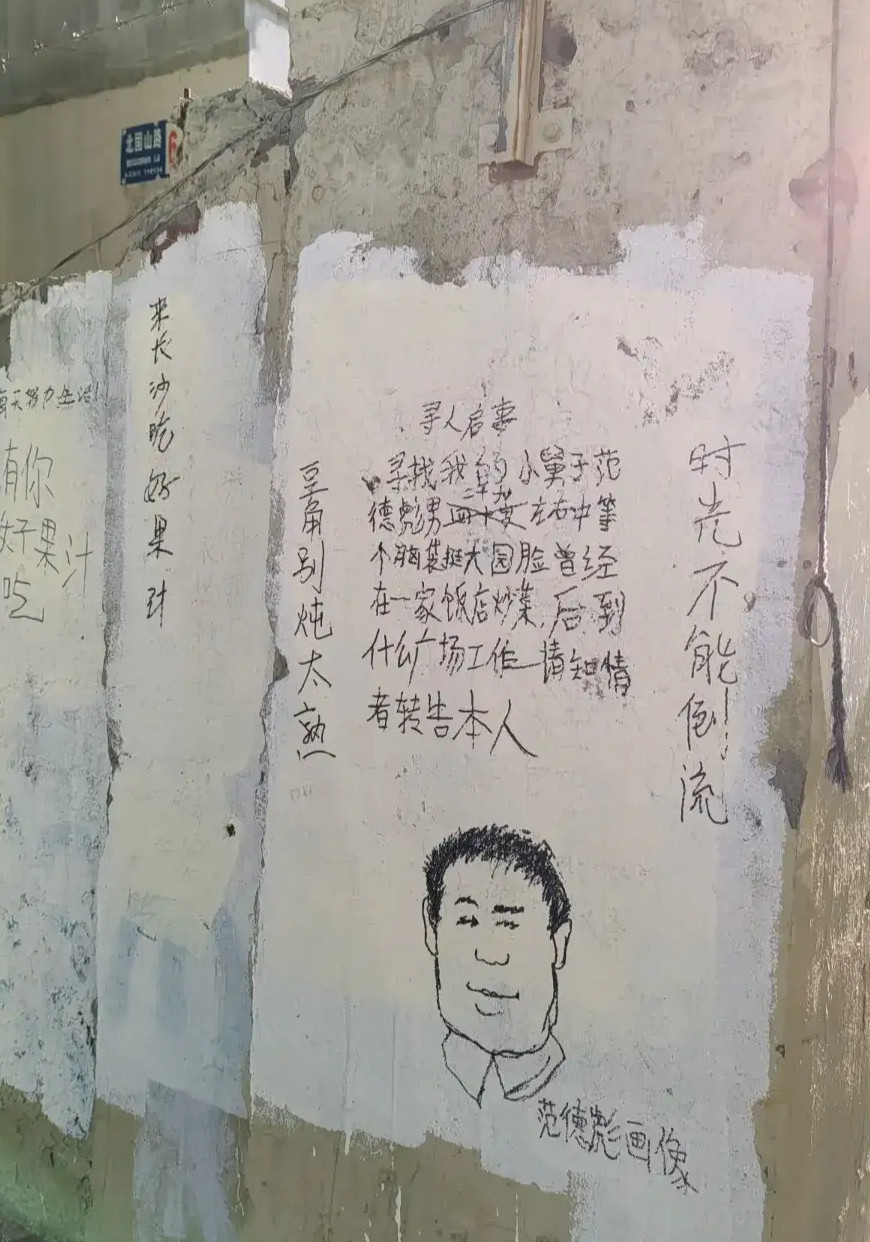 北国山路
6
每天努力生活!
有你
好果汁
吃
来长沙吃好果汁
豆角别炖太熟
寻人启事
寻找我的小舅子范
二十九
德彪男四十岁左右中等
个脑袋挺大园脸曾经
在一家饭店炒菜,后到
什么广场工作请知情
者转告本人
时光不能倒流!
范德彪画像